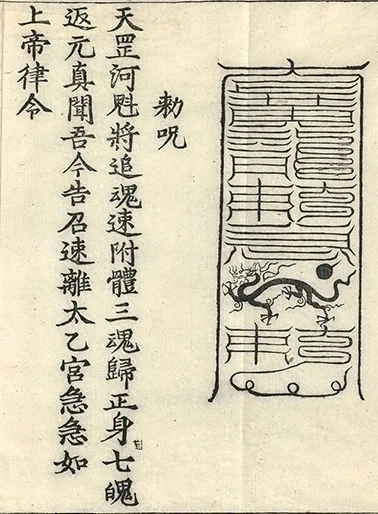 勅咒
天罡河魁將追魂速附體三魂歸正身七魄
返元真聞吾今告召速離太乙宮急急如
上帝律令